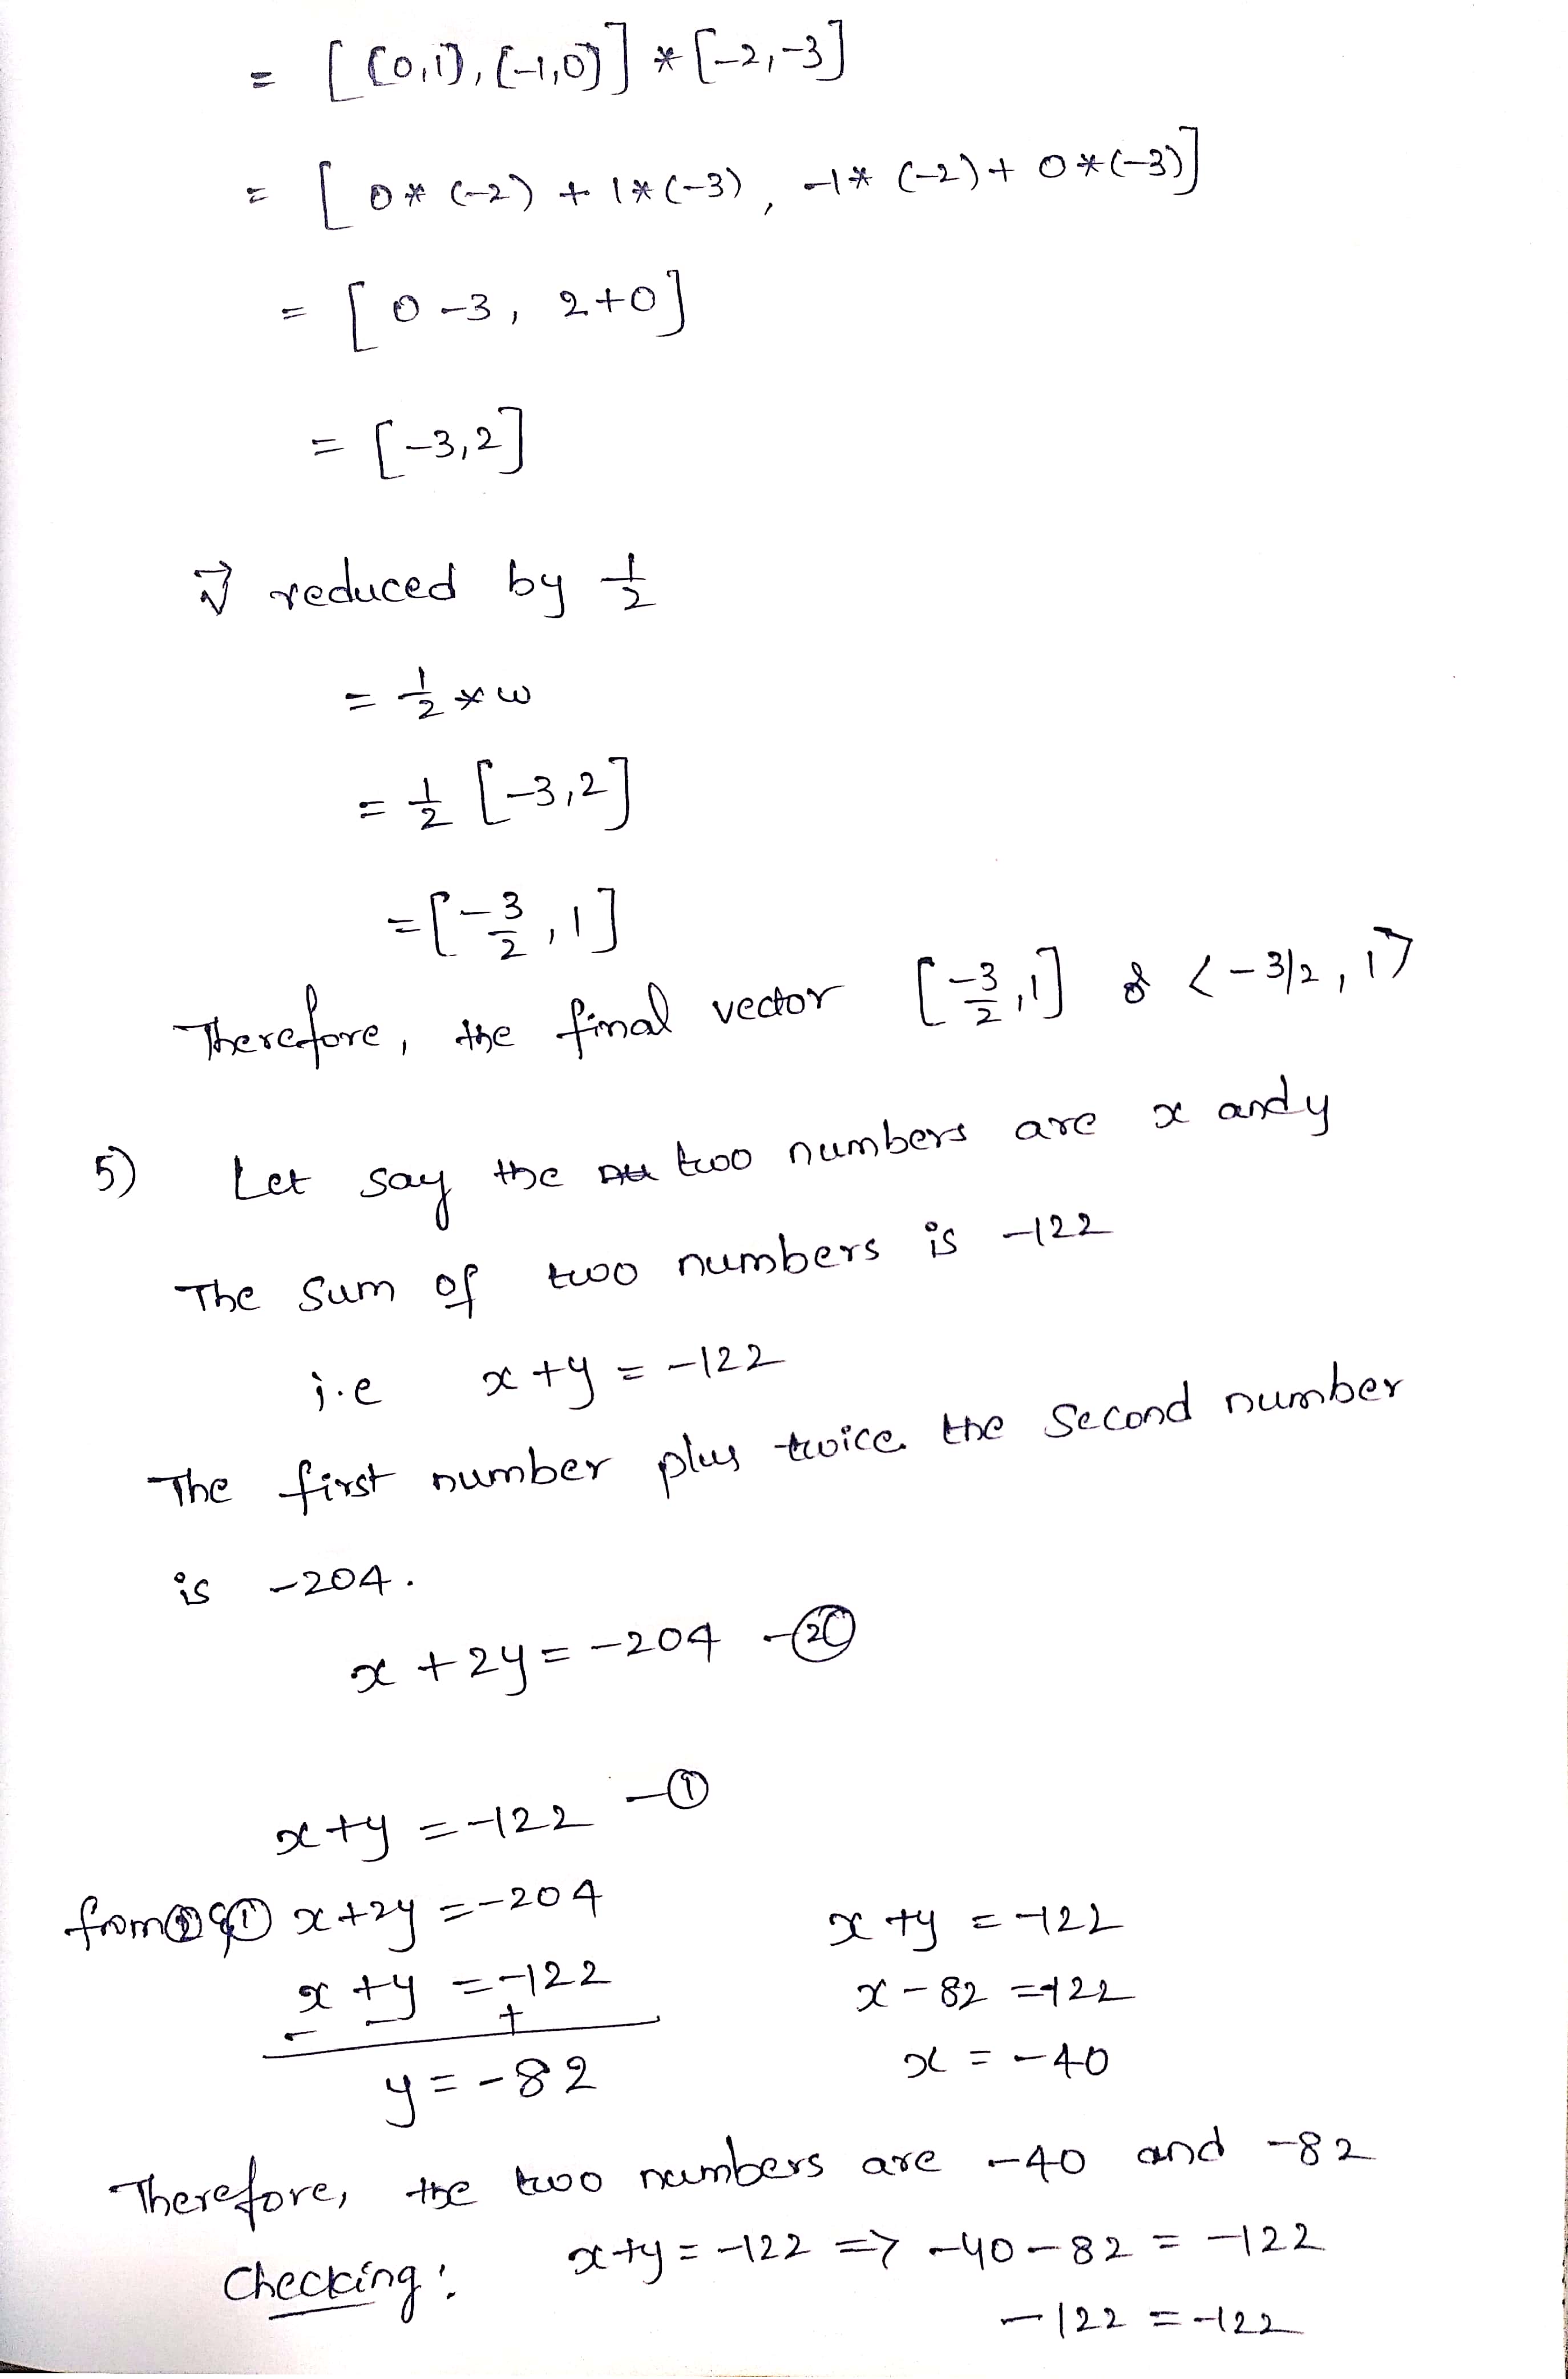 = [(0,1), (-1,0)] * [-2,-3]
= [0 * (-2) + 1 * (-3), -1 * (-2) + 0 * (-3)]
= [0-3, 2+0]
= [-3,2]
reduced by 1/2
= 1/2 * w
= 1/2 [-3,2]
= [-3/2, 1]
Therefore, the final vector [-3/2, 1] <-3/2, 1>
5) Let say the two numbers are x and y
The sum of two numbers is -122
i.e x+y = -122
The first number plus twice the second number
is -204.
x + 2y = -204
x+y = -122 - ①
from ② & ① x+2y = -204
x+y = -122
- - +
y = -82
x+y = -122
x - 82 = -122
x = -40
Therefore, the two numbers are -40 and -82
Checking: x+y = -122 => -40-82 = -122
-122 = -122